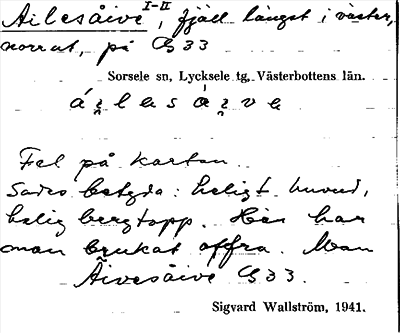 Ailesåive I-II, fjäll längst i väster,
norrut, på G 33
Sorsele sn, Lycksele tg, Västerbottens län.
á i̯ l e s á i̯ v e
Fel på kartan.
betyda: heligt huvud,
helig bergtopp. Här har
man brukat offra. Man
Äivesåive G 33.
Sigvard Wallström, 1941.